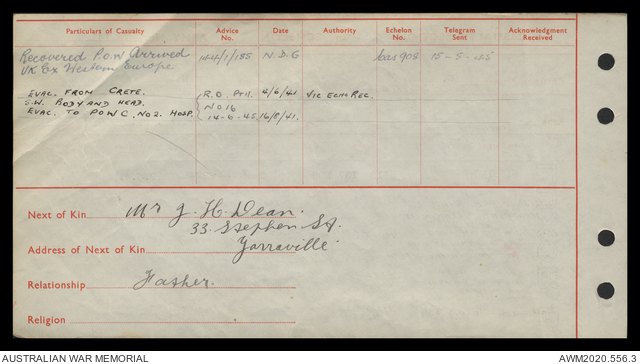 Particulars of Casualty Advice No. Date Authority Echelon No. Telegram Sent Acknowledgment Received
Recovered P.O.W Arrived M4/1/185 N.D.G cas 908 15-5-45
UK Ex Western Europe
EVAC. FROM CRETE. R.O. PtII. 4/6/41 VIC ECH. REC.
S.W. BODY AND HEAD. NO 16
EVAC. TO POWC. NO 2. HOSP. 14-6-45 16/8/41.
Next of Kin Mr J. H. Dean.
33 Stephen St.
Address of Next of Kin Yarraville
Relationship Father.
Religion
AUSTRALIAN WAR MEMORIAL AWM2020.556.3